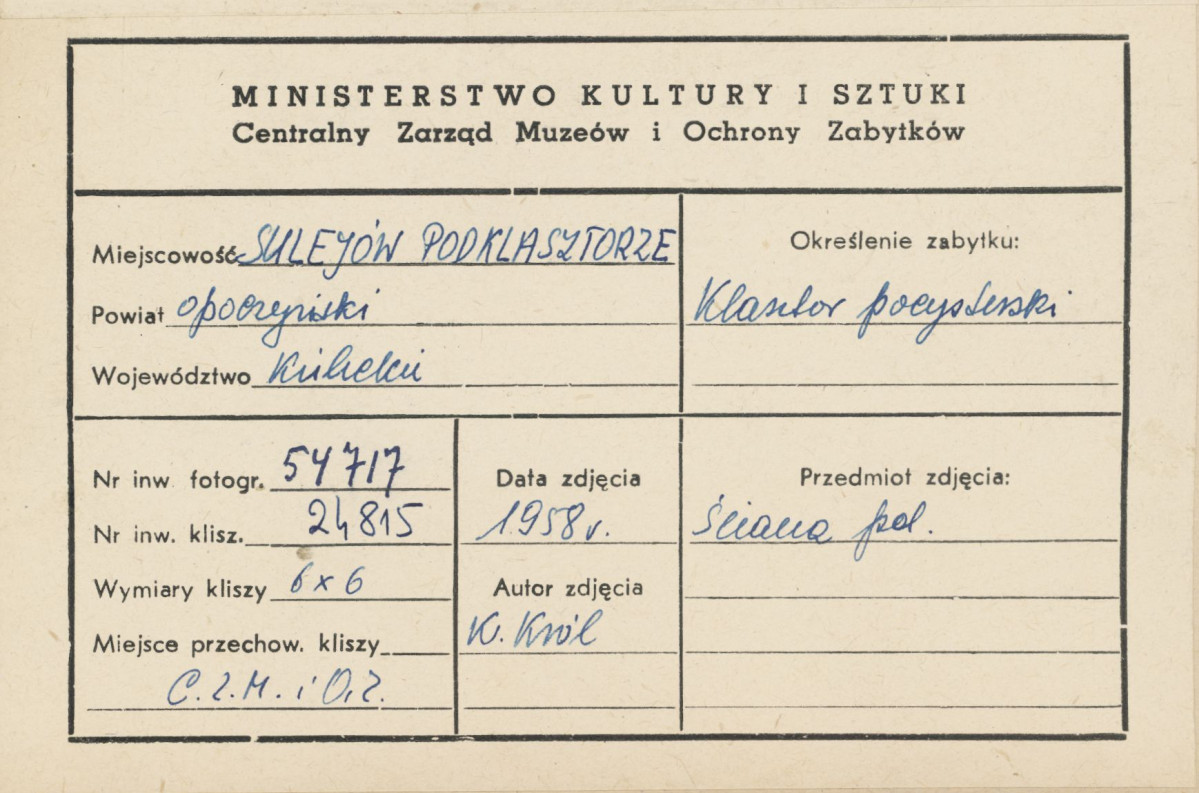 MINISTERSTWO KULTURY I SZTUKI
Centralny Zarząd Muzeów i Ochrony Zabytków
Miejscowość SULEJÓW PODKLASZTORZE
Powiat opoczyński
Województwo Kieleckie
Określenie zabytku:
Klasztor pocysterski
Nr inw. fotogr. 54717
Nr inw. klisz. 24815
Wymiary kliszy 6 x 6
Miejsce przechow. kliszy
C.Z.M. i O.Z.
Data zdjęcia
1958 r.
Autor zdjęcia
K. Król
Przedmiot zdjęcia:
Ściana pd.